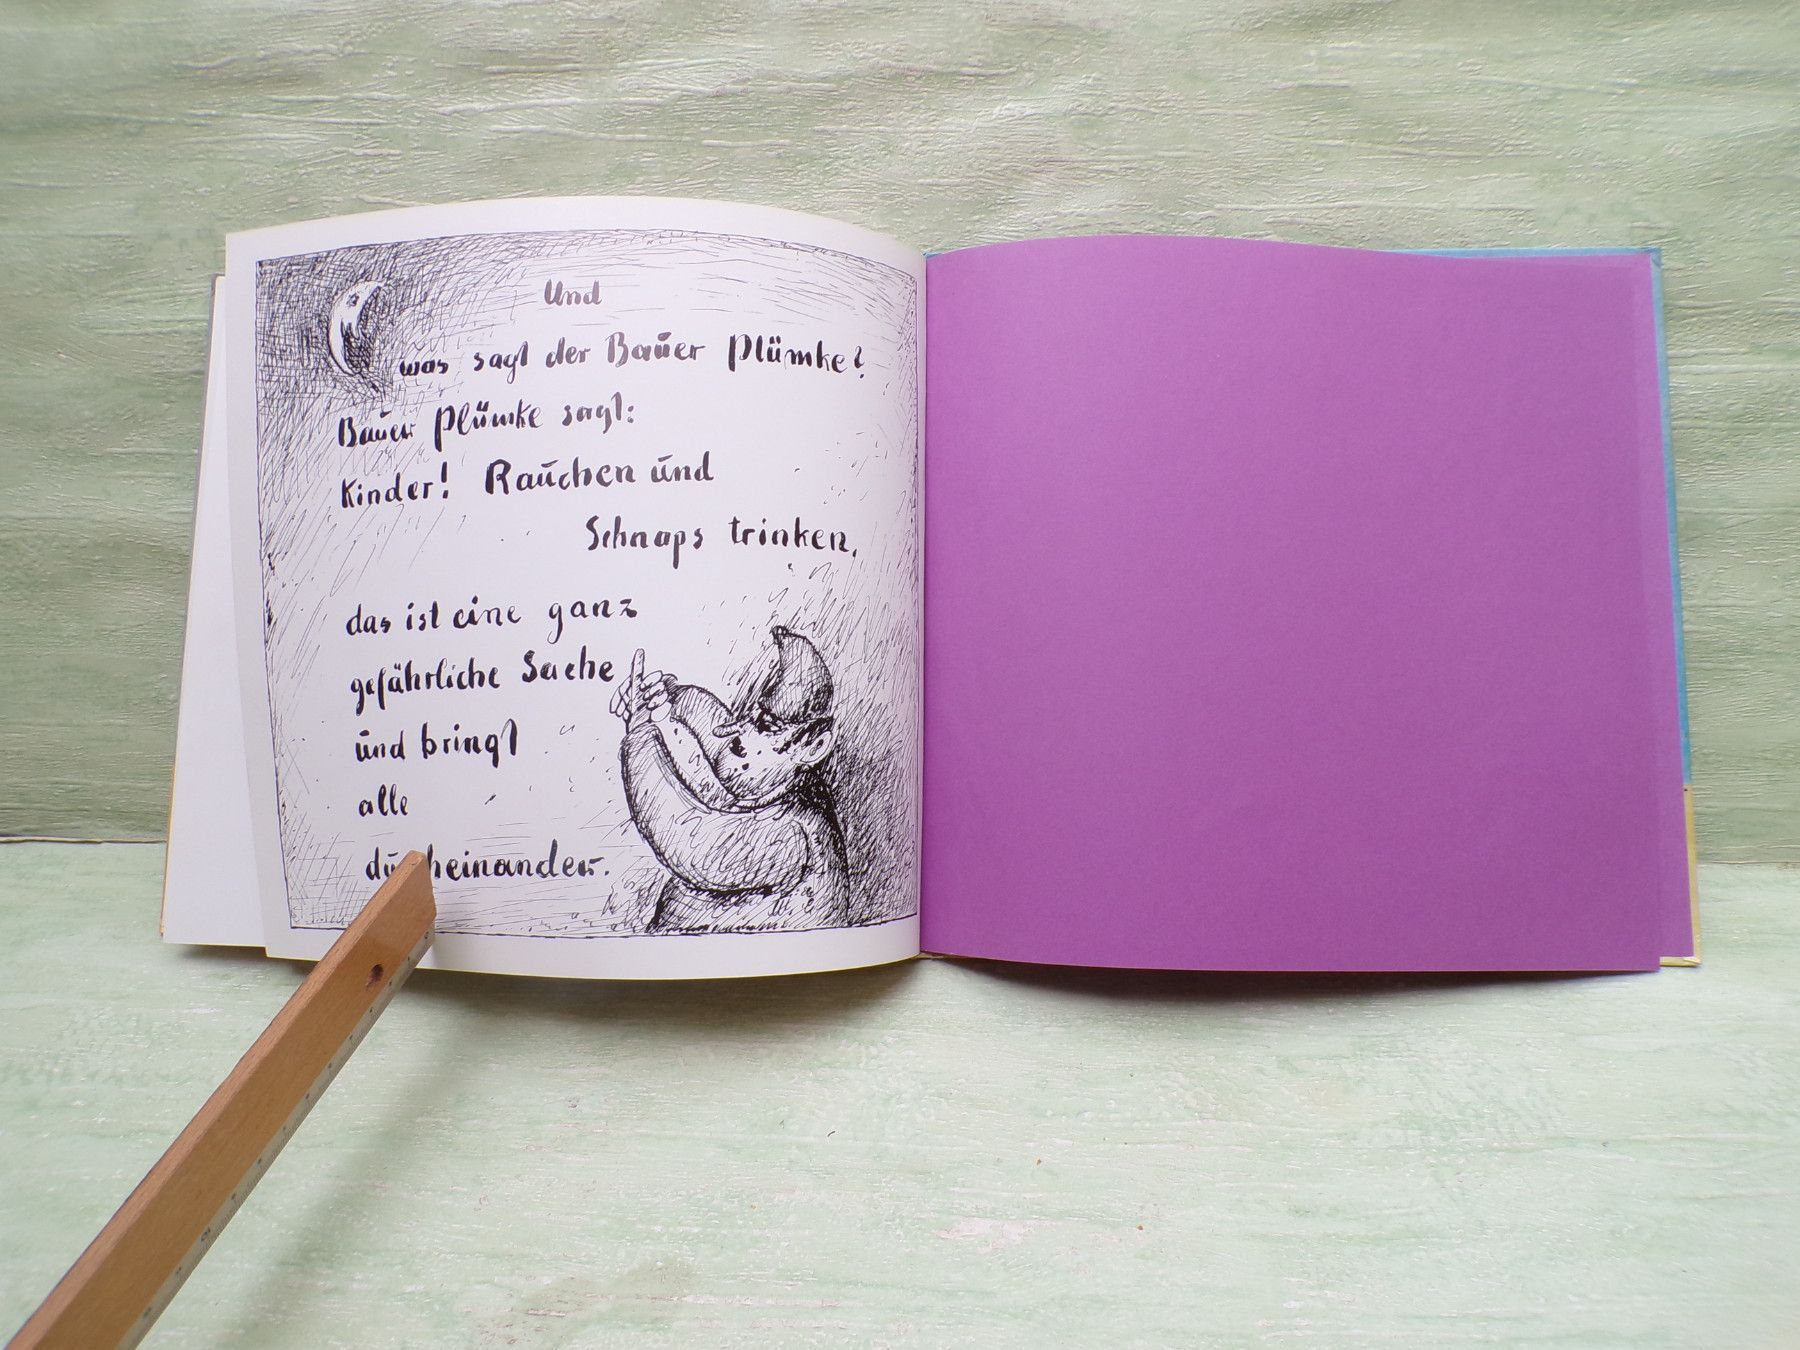 Und
was sagt der Bauer Plümke?
Bauer Plümke sagt:
Kinder! Rauchen und
Schnaps trinken,
das ist eine ganz
gefährliche Sache
und bringt
alle
durcheinander.